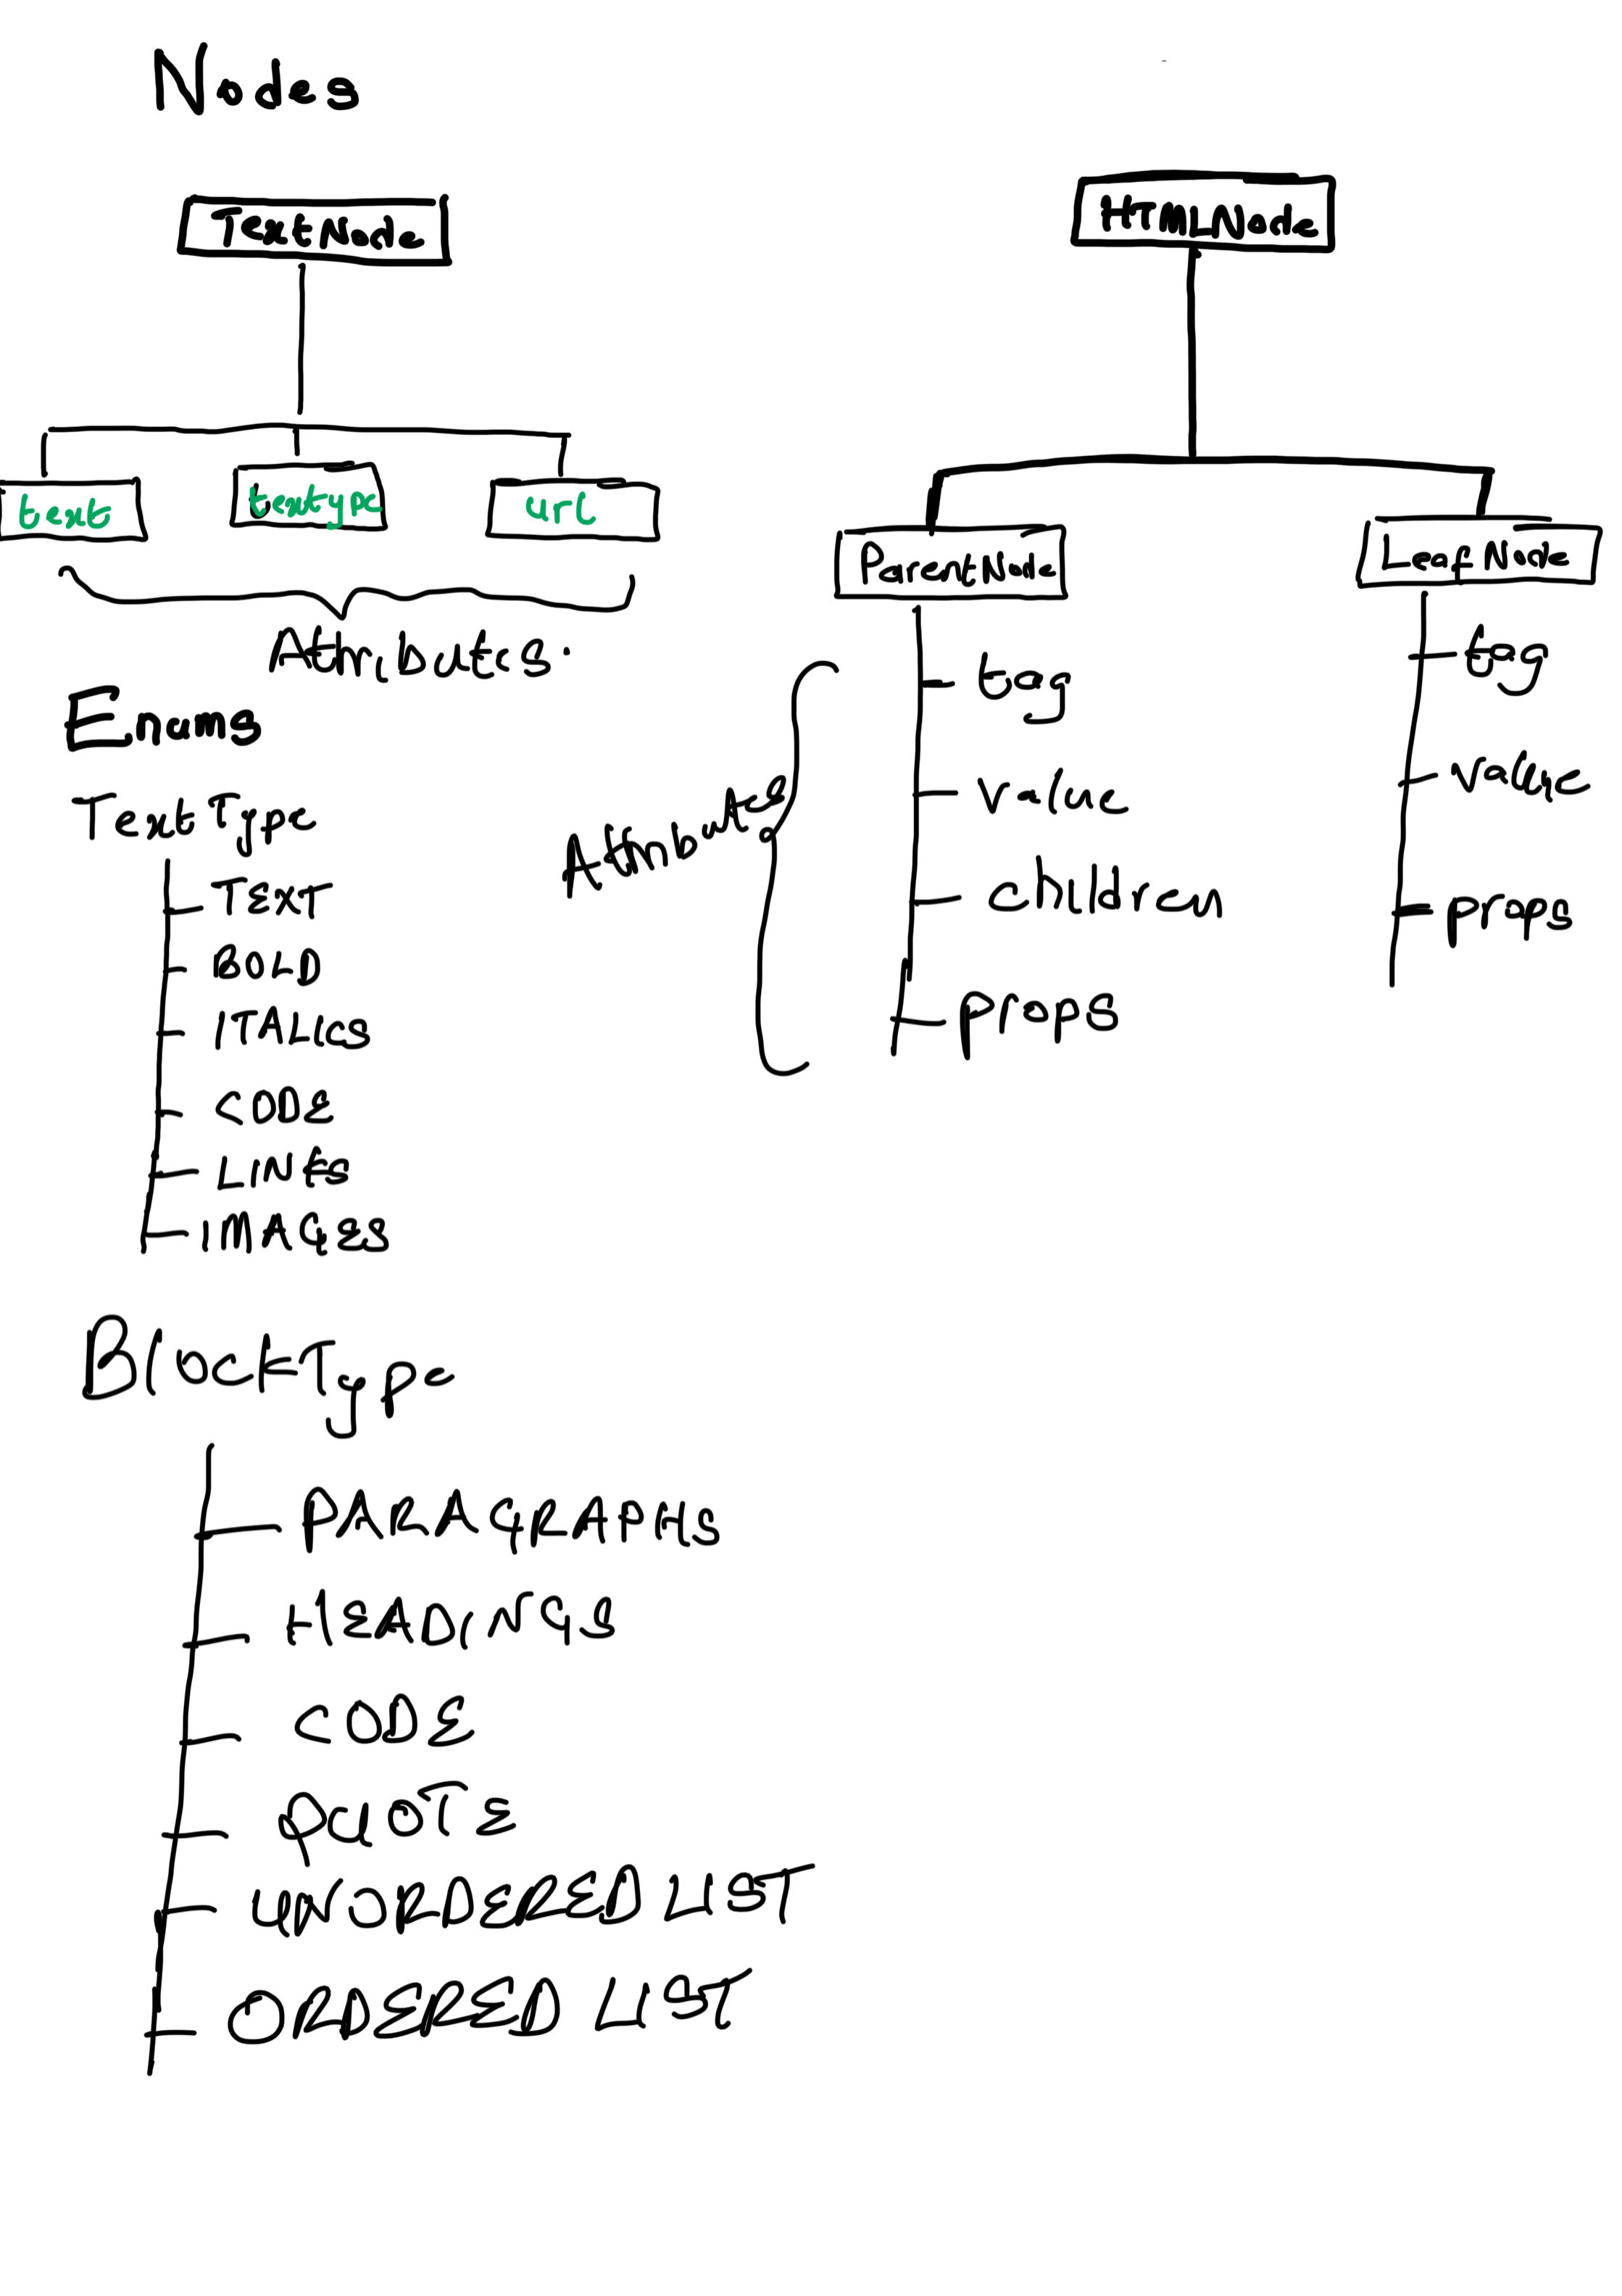 Nodes
TextNode
text
textype
url
Attributes.
HTMLNode
ParentNode
LeafNode
Attributes
tag
value
children
props
tag
value
props
Enums
TextType
TEXT
BOLD
ITALICS
CODE
LINKS
IMAGES
BlockType
PARAGRAPHS
HEADINGS
CODE
QUOTE
UNORDERED LIST
ORDERED LIST